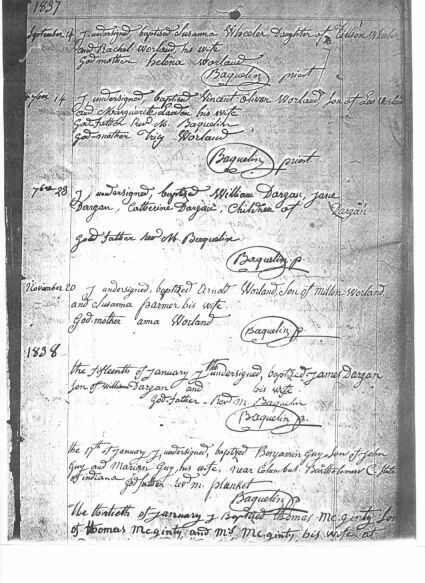 1837
September 14 J, undersigned, baptised Susanna Wheeler Daughter of
and Rachel Worland his wife
God mother helena Worland
Baquelin priest
14 J, undersigned, baptised Vincent Oliver Worland, Son of Leo Worland
and Marguerite his wife
God-father Rev. M. Baquelin
God-mother Worland
Baquelin priest
7bre 28 J, undersigned, baptised William Dargan, jane
Dargan, Catherine Dargan, Children of Dargan
God father Rev M. Baquelin
Baquelin p.
November 20 J undersigned, baptized Arnold Worland, Son of Milton Worland,
and Susanna parmer his wife.
God-mother anna Worland
Baquelin p.
1838
the fifteenth of January J the undersigned, baptized James Dargan
son of William Dargan and his wife
God-Father - Rev M. Baquelin
Baquelin p.
the 17th of January J, undersigned, baptized Benjamin Guy, Son of John
Guy and Marian Guy his wife, near Columbus. Bartholomew C. State
of indiana God father rev m. plunket
Baquelin p.
the thirtieth of january J Baptized thomas McGinty Son
of thomas McGinty and Mrs McGinty his wife at